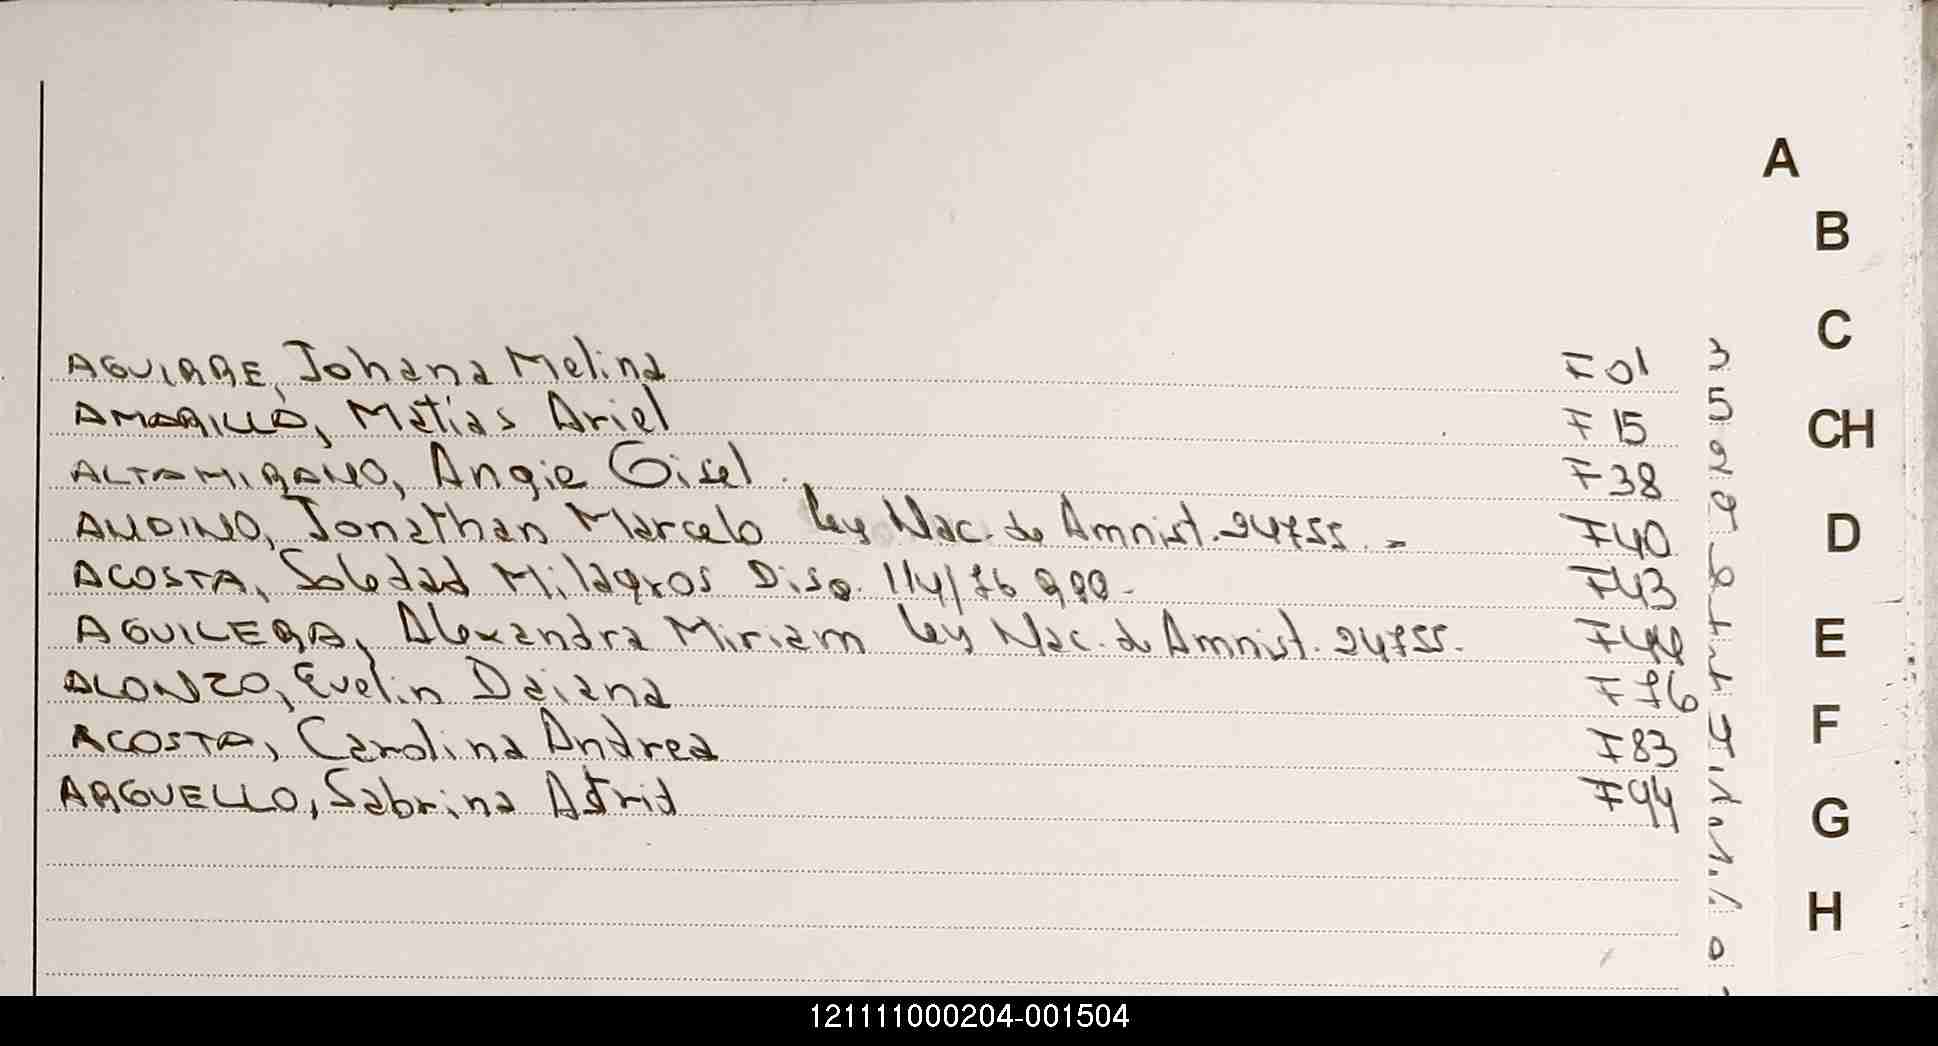 AGUIRRE, Johana Melina F 01
AMARILLO, Matias Ariel F 15
ALTAMIRANO, Angie Gisel. F 38
ANDINO, Jonathan Marcelo Ley Nac. de Amnist. 24755.- F40
ACOSTA, Soledad Milagros Disp. 114/76 F43
AGUILERA, Alexandra Miriam Ley Nac. de Amnist. 24755. F44
ALONZO, Evelin Daiana F 76
ACOSTA, Carolina Andrea F83
ARGUELLO, Sabrina Astrid F94
A
B
C
CH
D
E
F
G
H
121111000204-001504